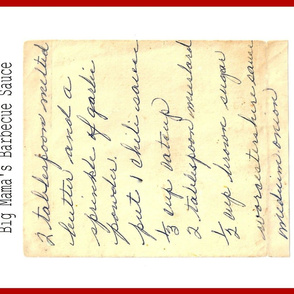 Big Mama's Barbecue Sauce
2 tablespoon melted
butter and a
sprinkle of garlic
powder.
put 1 chili sauce
1/3 cup catsup
2 tablespoon mustard
1/2 cup brown sugar
worcestershire sauce
medium onion